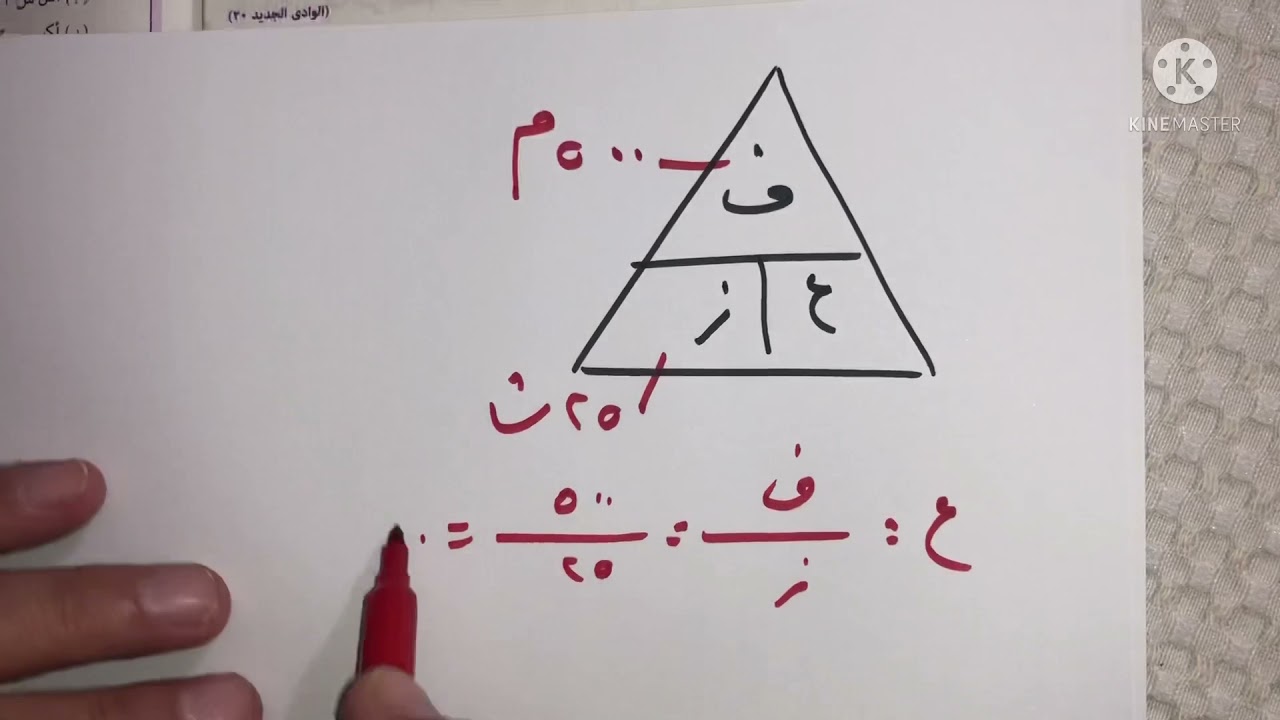 (الوادى الجديد ٢٠)
KINEMASTER
٥٠٠ م
ف
ع ز
٢٥ ث
ع = ف / ز = ٥٠٠ / ٢٥ = ٠